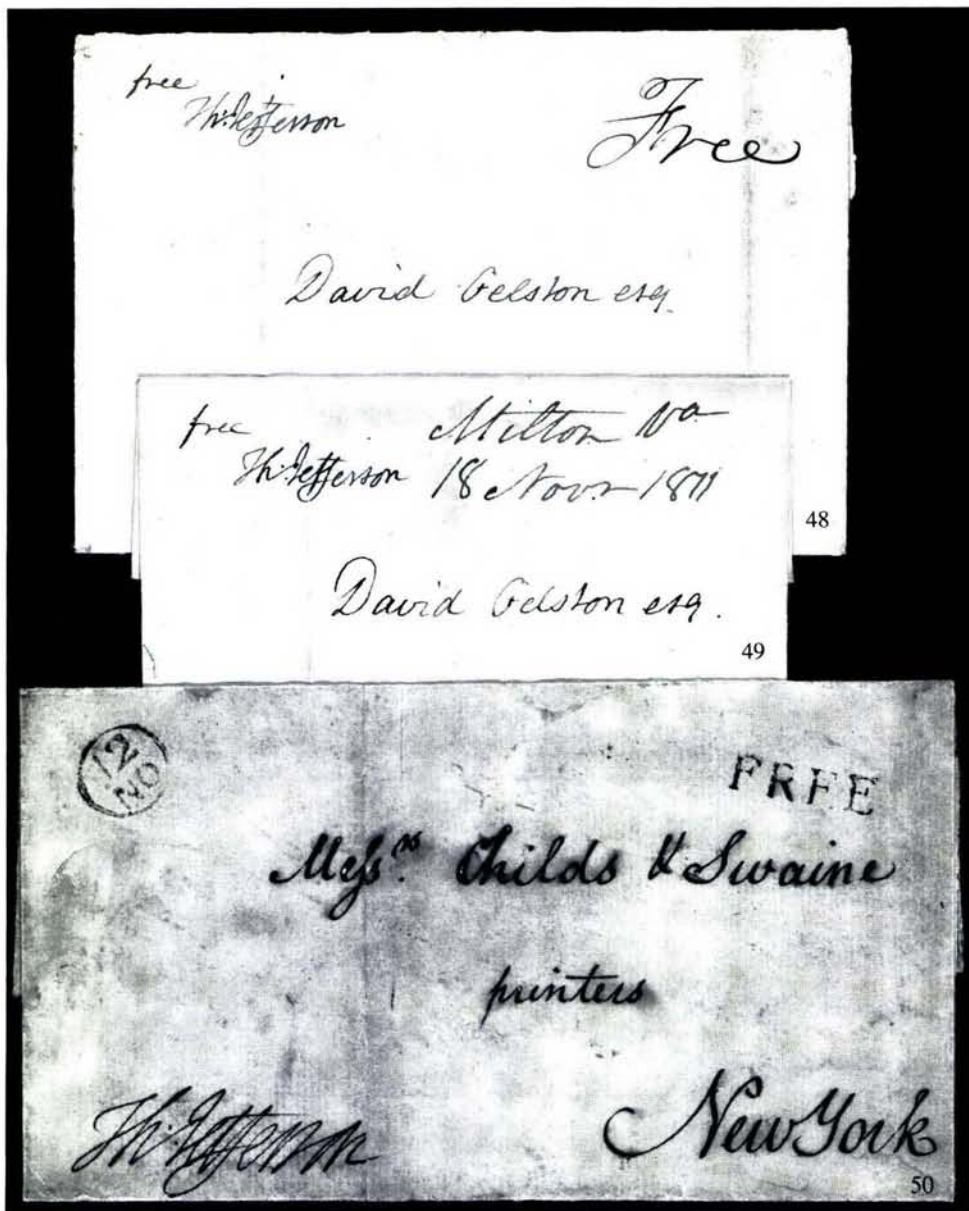 free
Th: Jefferson
Free
David Gelston esq.
48
free
Th: Jefferson
Milton Va
18 Novr 1811
David Gelston esq.
49
12
NO
FREE
Messrs. Childs & Swaine
printers
Th: Jefferson
New York
50